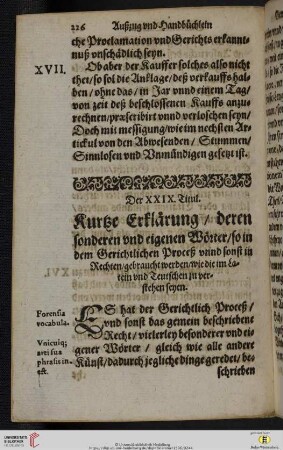 226 Außzug vnd Handbüchlein
che Proclamation vnd Gerichts erkannt-
nuß vnschädlich seyn.
XVII. Ob aber der Kauffer solches also nicht
thet / so sol die Anklage / deß verkauffs hal-
ben / ohne das / in Jar vnnd einem Tag /
von zeit deß beschlossenen Kauffs anzu-
rechnen / præscribirt vnnd verloschen seyn /
Doch mit messigung / wie im nechsten Ar-
tickul von den Abwesenden / Stummen /
Sinnlosen vnd Vnmündigen gesetzt ist.
Der XXIX. Titul.
Kurtze Erklärung / deren
sonderen vnd eigenen Wörter / so in
dem Gerichtlichen Proceß vnnd sonst in
Rechten / gebraucht werden / wie die im La-
tein vnd Teutschen zu ver-
stehen seyen.
Forensia
vocabula.
Vnicuiq;
arti sua
phrasis in-
est.
ES hat der Gerichtlich Proceß /
vnd sonst das gemein beschriebene
Recht / vielerley besonderer vnd ei-
gener Wörter / gleich wie alle andere
Künst / dadurch jegliche dinge geredet / be-
schrieben
UNIVERSITÄTS-
BIBLIOTHEK
HEIDELBERG